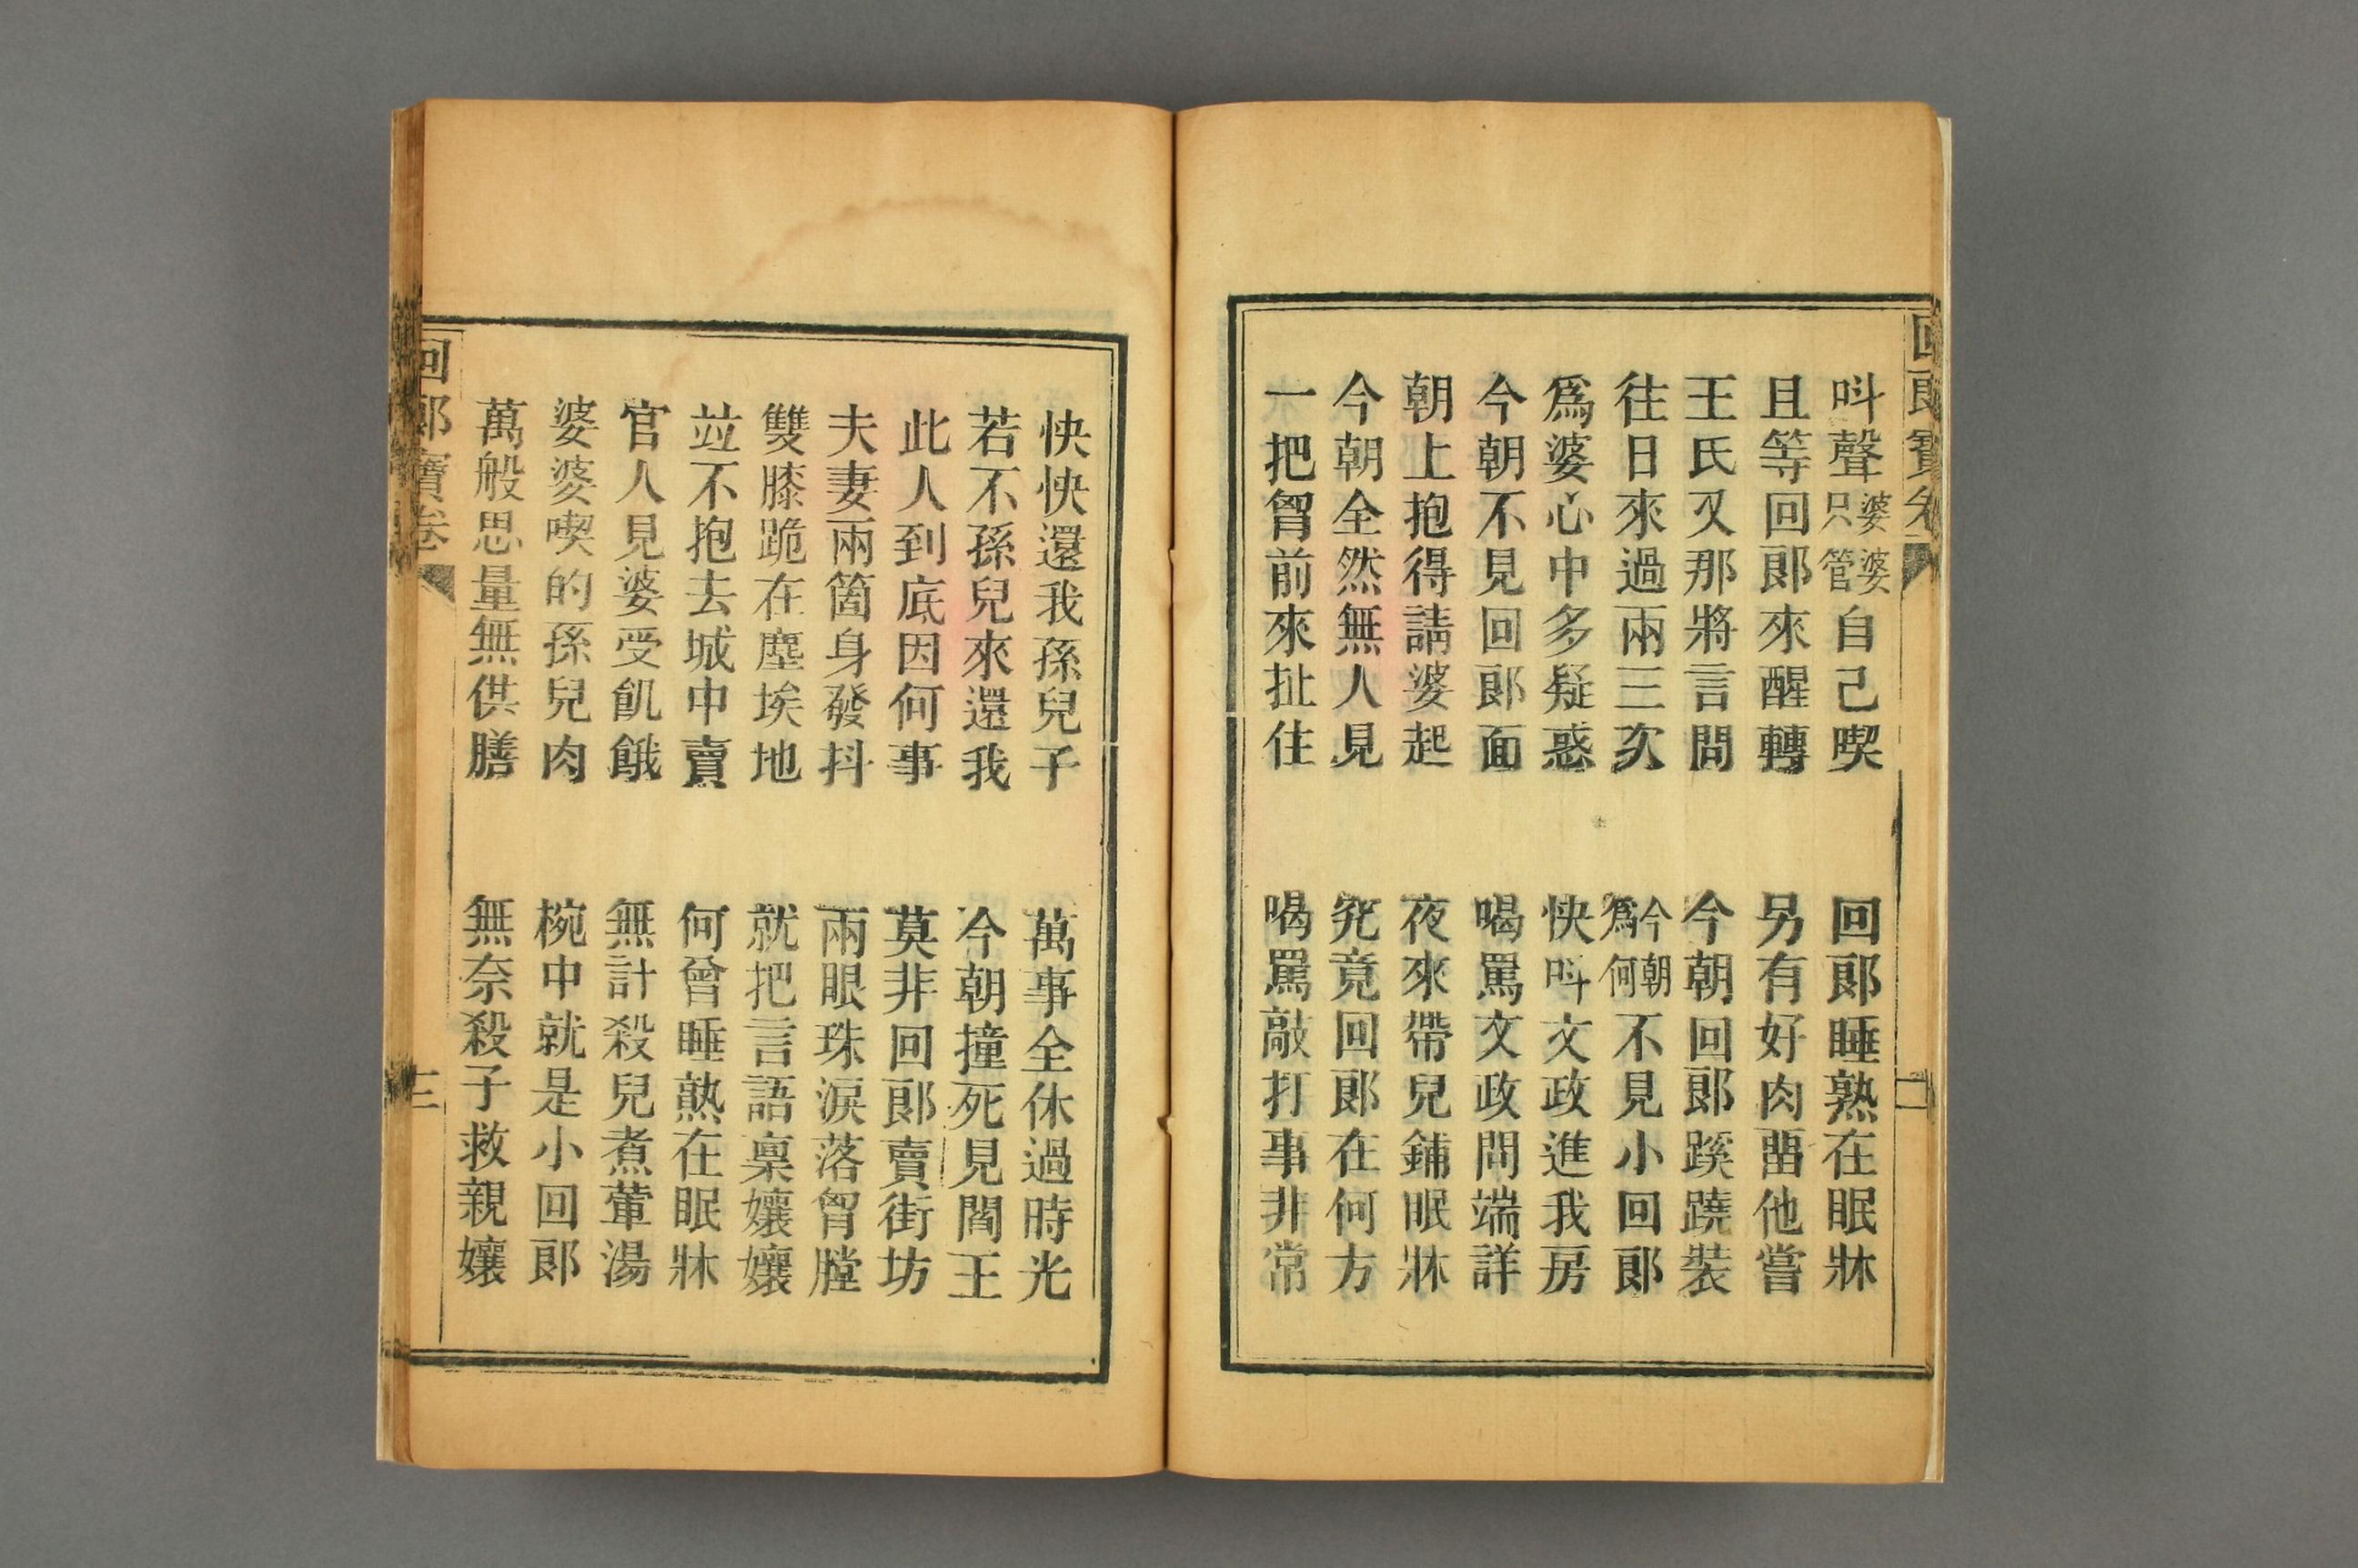 回郎寶卷
二
呌聲婆婆只管自己喫　回郎睡熟在眠牀
且等回郎來醒轉　另有好肉畱他嘗
王氏又那將言問　今朝回郎蹊蹺裝
往日來過兩三次　今朝爲何不見小回郎
爲婆心中多疑惑　快呌文政進我房
今朝不見回郎面　喝罵文政問端詳
朝上抱得請婆起　夜來帶兒鋪眠牀
今朝全然無人見　究竟回郎在何方
一把胷前來扯住　喝罵敲打事非常
快快還我孫兒子　萬事全休過時光
若不孫兒來還我　今朝撞死見閻王
此人到底因何事　莫非回郎賣街坊
夫妻兩箇身發抖　兩眼珠淚落胷膛
雙膝跪在塵埃地　就把言語稟孃孃
竝不抱去城中賣　何曾睡熟在眠牀
官人見婆受飢餓　無計殺兒煮葷湯
婆婆喫的孫兒肉　椀中就是小回郎
萬般思量無供膳　無奈殺子救親孃
回郎寶卷
三